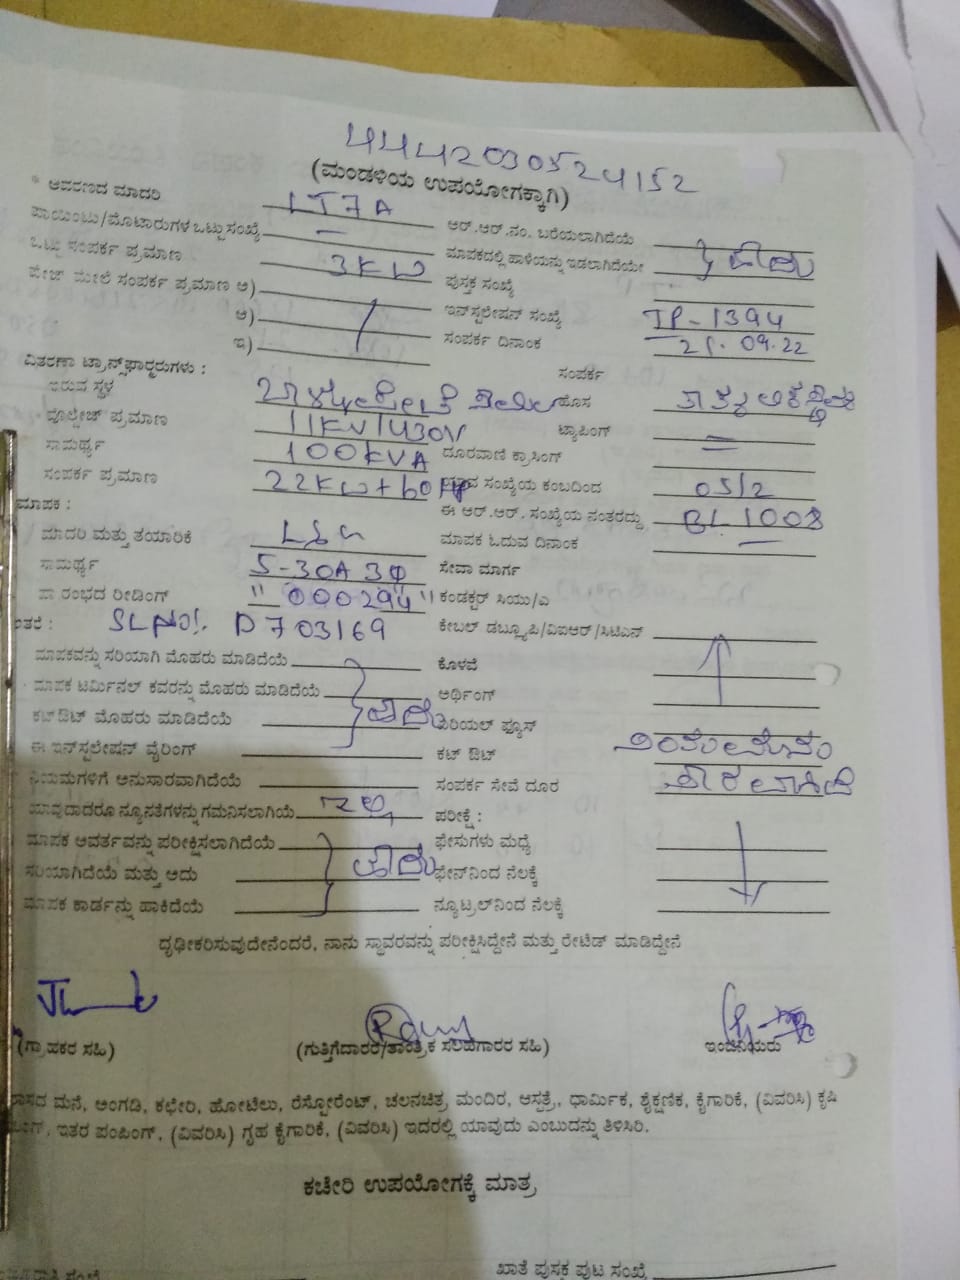 4442030524152
(ಮಂಡಳಿಯ ಉಪಯೋಗಕ್ಕಾಗಿ)
ಆವರಣದ ಮಾದರಿ LT7A ಆರ್.ಆರ್.ನಂ. ಬರೆಯಲಾಗಿದೆಯೆ
ಪಾಯಿಂಟು/ಮೋಟಾರುಗಳ ಒಟ್ಟು ಸಂಖ್ಯೆ — ಮಾಪಕದಲ್ಲಿ ಹಾಳೆಯನ್ನು ಇಡಲಾಗಿದೆಯೇ
ಒಟ್ಟು ಸಂಪರ್ಕ ಪ್ರಮಾಣ 3KW ಪುಸ್ತಕ ಸಂಖ್ಯೆ
ಪೇಜ್ ಮೇಲೆ ಸಂಪರ್ಕ ಪ್ರಮಾಣ ಅ) ಇನ್‌ಸ್ಟಲೇಷನ್ ಸಂಖ್ಯೆ TP-1394
ಆ) ಸಂಪರ್ಕ ದಿನಾಂಕ 09.22
ಇ)
ವಿತರಣಾ ಟ್ರಾನ್ಸ್‌ಫಾರ್ಮರುಗಳು : ಸಂಪರ್ಕ
ಇರುವ ಸ್ಥಳ ಹೊಸ
ವೋಲ್ಟೇಜ್ ಪ್ರಮಾಣ 11KV/430V ಟ್ಯಾಪಿಂಗ್ —
ಸಾಮರ್ಥ್ಯ 100KVA ದೂರವಾಣಿ ಕ್ರಾಸಿಂಗ್
ಸಂಪರ್ಕ ಪ್ರಮಾಣ 22KW+60HP ಸಂಖ್ಯೆಯ ಕಂಬದಿಂದ 05/2
ಮಾಪಕ : ಈ ಆರ್.ಆರ್. ಸಂಖ್ಯೆಯ ನಂತರದ್ದು BL1008
ಮಾದರಿ ಮತ್ತು ತಯಾರಿಕೆ L&G ಮಾಪಕ ಓದುವ ದಿನಾಂಕ —
ಸಾಮರ್ಥ್ಯ 5-30A 3Φ ಸೇವಾ ಮಾರ್ಗ
ಪ್ರಾರಂಭದ ರೀಡಿಂಗ್ "000294" ಕಂಡಕ್ಟರ್ ಸಿಯು/ಎ
SL NO:. D703169 ಕೇಬಲ್ ಡಬ್ಲ್ಯೂಪಿ/ವಿಐಆರ್/ಸಿಟಿಎಸ್
ಮಾಪಕವನ್ನು ಸರಿಯಾಗಿ ಮೊಹರು ಮಾಡಿದೆಯೆ ಕೊಳವೆ
ಮಾಪಕ ಟರ್ಮಿನಲ್ ಕವರನ್ನು ಮೊಹರು ಮಾಡಿದೆಯೆ ಅರ್ಥಿಂಗ್
ಕಟ್‌ಔಟ್ ಮೊಹರು ಮಾಡಿದೆಯೆ ಹೌದು ಏರಿಯಲ್ ಫ್ಯೂಸ್
ಈ ಇನ್‌ಸ್ಟಲೇಷನ್ ವೈರಿಂಗ್ ಕಟ್ ಔಟ್
ನಿಯಮಗಳಿಗೆ ಅನುಸಾರವಾಗಿದೆಯೆ ಸಂಪರ್ಕ ಸೇವೆ ದೂರ
ಯಾವುದಾದರೂ ನ್ಯೂನತೆಗಳನ್ನು ಗಮನಿಸಲಾಗಿಯೆ ಇಲ್ಲ ಪರೀಕ್ಷೆ :
ಮಾಪಕ ಆವರ್ತವನ್ನು ಪರೀಕ್ಷಿಸಲಾಗಿದೆಯೆ ಫೇಸುಗಳು ಮಧ್ಯೆ
ಸರಿಯಾಗಿದೆಯೆ ಮತ್ತು ಅದು ಹೌದು ಫೇಸ್‌ನಿಂದ ನೆಲಕ್ಕೆ
ಮಾಪಕ ಕಾರ್ಡನ್ನು ಹಾಕಿದೆಯೆ ನ್ಯೂಟ್ರಲ್‌ನಿಂದ ನೆಲಕ್ಕೆ
ದೃಢೀಕರಿಸುವುದೇನೆಂದರೆ, ನಾನು ಸ್ಥಾವರವನ್ನು ಪರೀಕ್ಷಿಸಿದ್ದೇನೆ ಮತ್ತು ರೇಟಿಡ್ ಮಾಡಿದ್ದೇನೆ
(ಗ್ರಾಹಕರ ಸಹಿ) (ಗುತ್ತಿಗೆದಾರರ/ತಾಂತ್ರಿಕ ಸಲಹಗಾರರ ಸಹಿ) ಇಂಜಿನಿಯರು
ಮನೆ, ಅಂಗಡಿ, ಕಛೇರಿ, ಹೋಟೆಲು, ರೆಸ್ಟೋರೆಂಟ್, ಚಲನಚಿತ್ರ ಮಂದಿರ, ಆಸ್ಪತ್ರೆ, ಧಾರ್ಮಿಕ, ಶೈಕ್ಷಣಿಕ, ಕೈಗಾರಿಕೆ, (ವಿವರಿಸಿ) ಕೃಷಿ
ಇತರ ಪಂಪಿಂಗ್, (ವಿವರಿಸಿ) ಗೃಹ ಕೈಗಾರಿಕೆ, (ವಿವರಿಸಿ) ಇದರಲ್ಲಿ ಯಾವುದು ಎಂಬುದನ್ನು ತಿಳಿಸಿರಿ.
ಕಚೇರಿ ಉಪಯೋಗಕ್ಕೆ ಮಾತ್ರ
ಖಾತೆ ಪುಸ್ತಕ ಪುಟ ಸಂಖ್ಯೆ